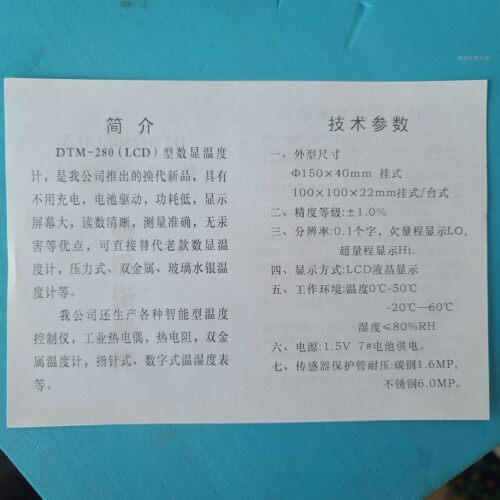 简 介
DTM-280(LCD)型数显温度
计，是我公司推出的换代新品，具有
不用充电，电池驱动，功耗低，显示
屏幕大，读数清晰，测量准确，无汞
害等优点，可直接替代老款数显温
度计，压力式、双金属、玻璃水银温
度计等。
我公司还生产各种智能型温度
控制仪，工业热电偶，热电阻，双金
属温度计，指针式、数字式温湿度表
等。
技术参数
一、外型尺寸
Φ150×40mm 挂式
100×100×22mm挂式/台式
二、精度等级:±1.0%
三、分辨率:0.1个字，欠量程显示LO,
超量程显示Hi.
四、显示方式:LCD液晶显示
五、工作环境:温度0℃-50℃
-20℃—60℃
湿度≤80%RH
六、电源:1.5V 7#电池供电。
七、传感器保护管耐压:碳钢1.6MP,
不锈钢6.0MP。